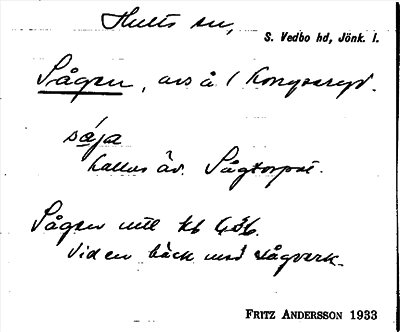 Hults sn,
S. Vedbo hd, Jönk. l.
Sågen, avs å 1 Kongseryd.
såja
kallas äv. Sågtorpet.
Sågen utt kb 636.
Vid en bäck med sågverk.
FRITZ ANDERSSON 1933